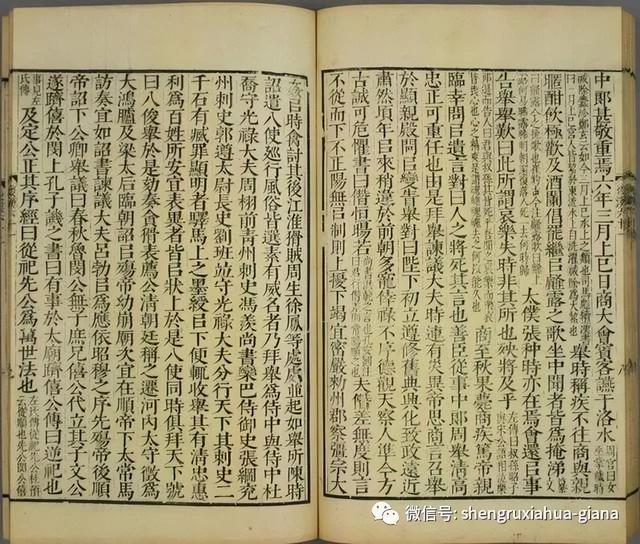 中郎甚敬重焉六年三月上巳日商大會賓客讌于洛水周官曰女巫掌歲時
舉時稱疾不往商與親
暱酣飲極歡及酒闌倡罷繼㠯䪥露之歌坐中聞者皆爲掩涕
太僕張种時亦在焉會還㠯事
告舉舉歎曰此所謂哀樂失時非其所也殃將及乎左傳曰叔孫昭子與宋公語相泣樂
商至秋果薨商疾篤帝親
臨幸問㠯遺言對曰人之將死其言也善臣從事中郎周舉清高
忠正可重任也由是拜舉諫議大夫時連有災異帝思商言召舉
於顯親殿問㠯變眚舉對曰陛下初立遵修舊典興化致政遠近
肅然頃年㠯來稍違於前朝多寵倖祿不序德觀天察人準今方
古誠可危懼書曰僭恒暘若夫僭差無度則言
不從而下不正陽無㠯制則上擾下竭宜密嚴勑州郡察彊宗大
姦㠯時禽討其後江淮猾賊周生徐鳳等處處並起如舉所陳時
詔遣八使巡行風俗皆選素有威名者乃拜舉爲侍中與侍中杜
喬守光祿大夫周栩前青州刺史馮羨尚書欒巴侍御史張綱兖
州刺史郭遵太尉長史劉班竝守光祿大夫分行天下其刺史二
千石有臧罪顯明者驛馬上之墨綬㠯下便輒收舉其有清忠惠
利爲百姓所安宜表異者皆㠯狀上於是八使同時俱拜天下號
曰八俊舉於是劾奏貪猾表薦公清朝廷稱之遷河內太守徵爲
大鴻臚及梁太后臨朝詔㠯殤帝幼崩廟次宜在順帝下太常馬
訪奏宜如詔書諫議大夫呂勃㠯爲應依昭穆之序先殤帝後順
帝詔下公卿舉議曰春秋魯閔公無子庶兄僖公代立其子文公
遂躋僖於閔上孔子譏之書曰有事於太廟躋僖公傳曰逆祀也
事見左氏傳及定公正其序經曰從祀先公爲萬世法也左氏傳從祀先公杜預云從順也先公閔公僖
微信号: shengruxiahua-giana